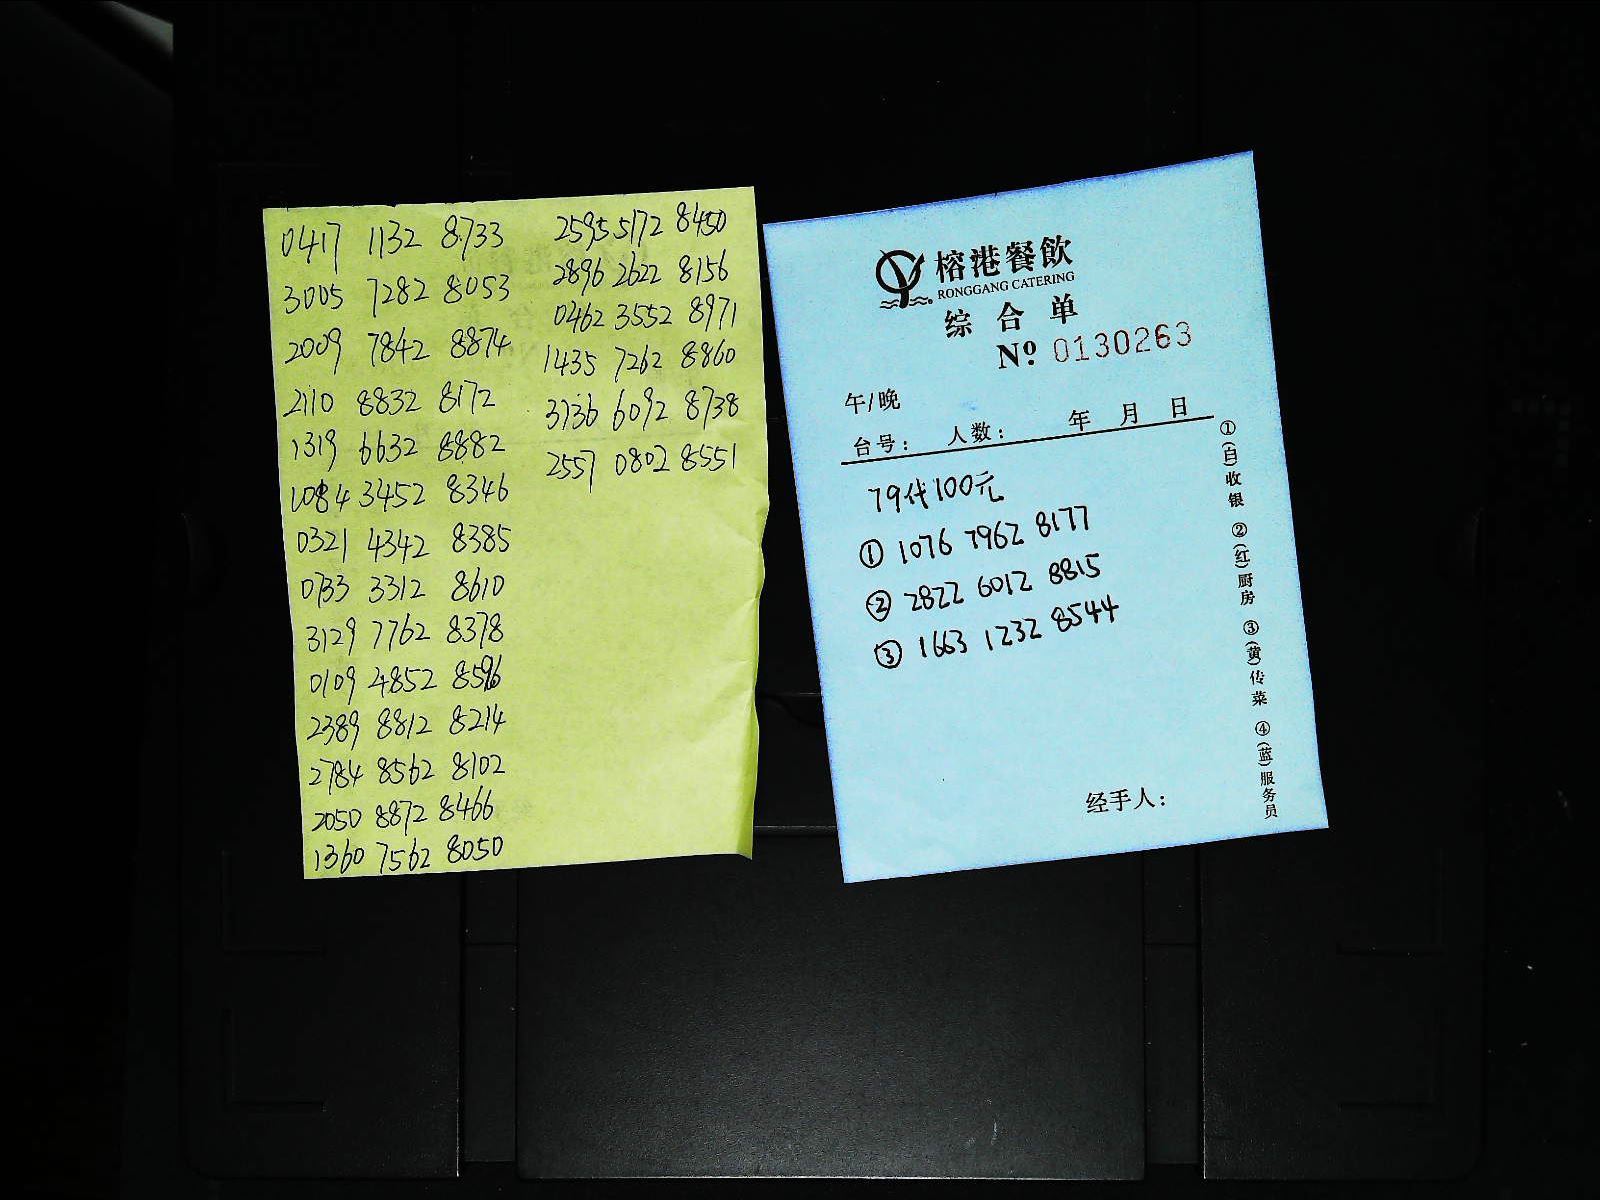 0417 1132 8733
3005 7282 8053
2009 7842 8874
2110 8832 8172
1319 6632 8882
1084 3452 8346
0321 4342 8385
0733 3312 8610
3129 7762 8378
0109 4852 8596
2389 8812 8214
2784 8562 8102
2050 8872 8466
1360 7562 8050
2595 5172 8450
2896 2622 8156
0462 3552 8971
1435 7262 8860
3136 6092 8738
2557 0802 8551
榕港餐飲
RONGGANG CATERING
综合单
Nº 0130263
午/晚
台号: 人数: 年 月 日
79代100元
① 1076 7962 8177
② 2822 6012 8815
③ 1663 1232 8544
经手人:
①(自)收银 ②(红)厨房 ③(黄)传菜 ④(蓝)服务员